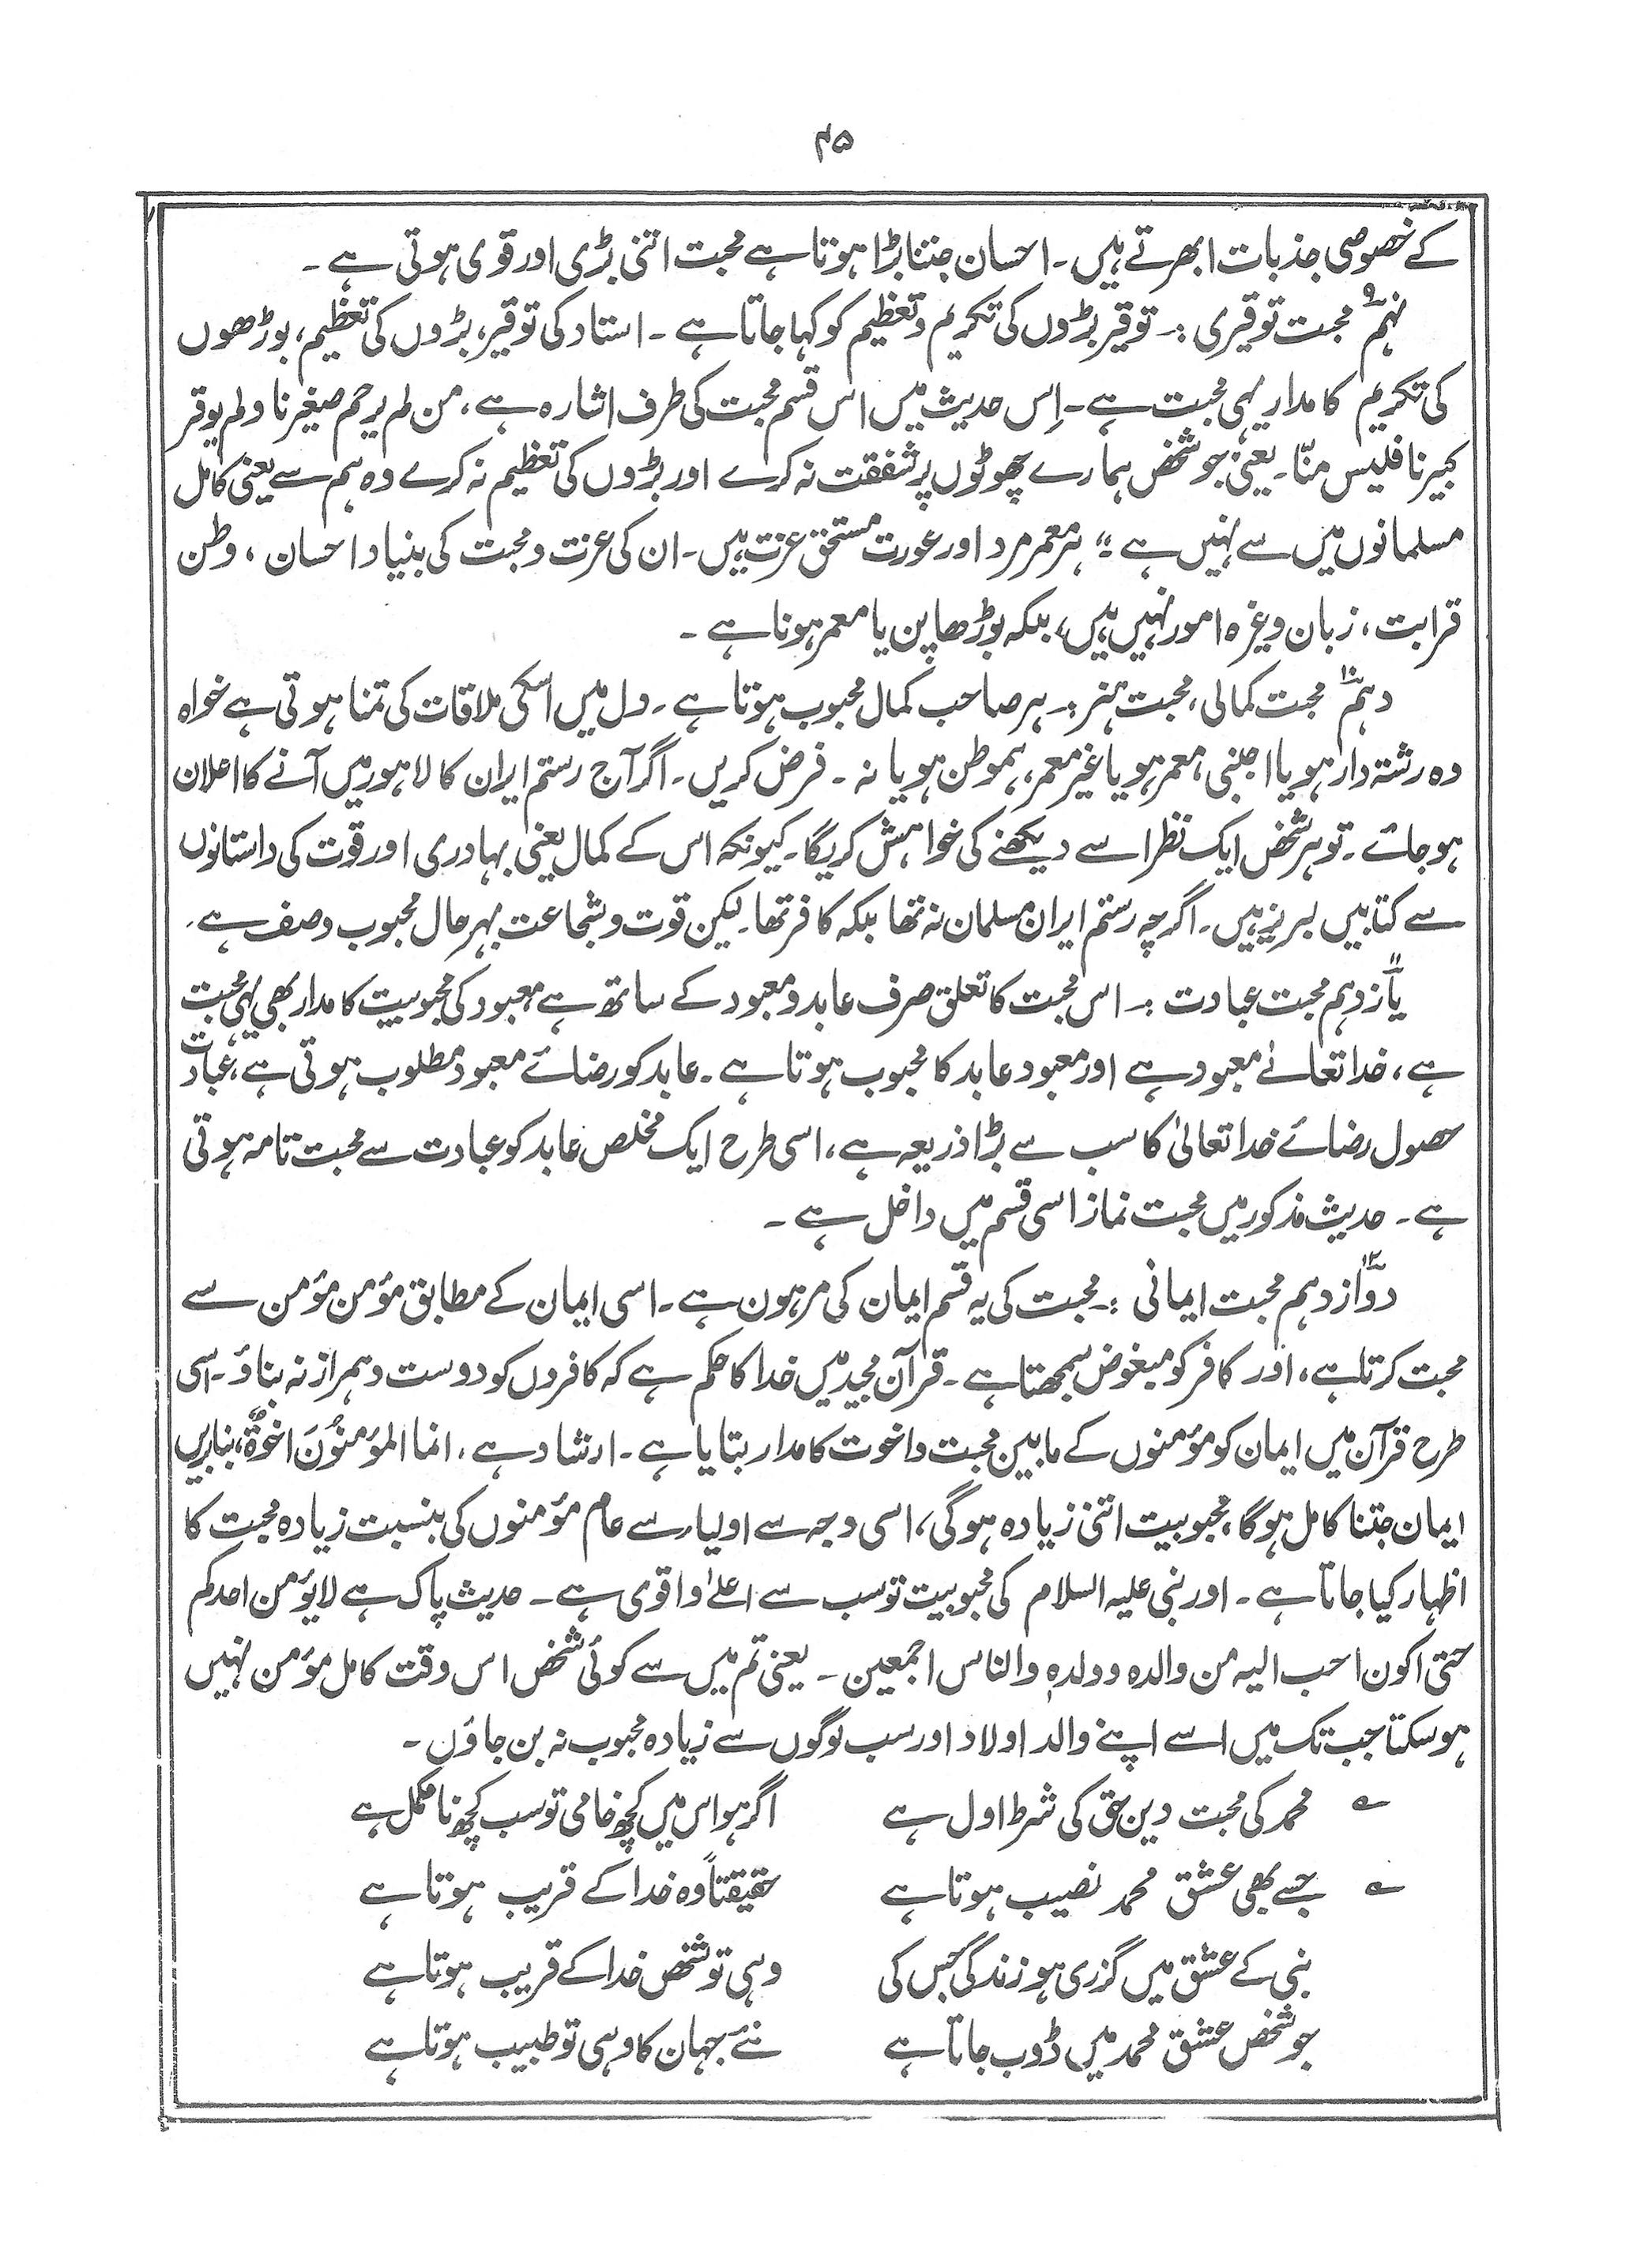 ۴۵
کے خصوصی جذبات ابھرتے ہیں۔ احسان جتنا بڑا ہوتا ہے محبت اتنی بڑی اور قوی ہوتی ہے۔
نہم۹ محبت توقیری :۔ توقیر بڑوں کی تکریم و تعظیم کو کہا جاتا ہے۔ استاد کی توقیر، بڑوں کی تعظیم، بوڑھوں
کی تکریم کا مدار یہی محبت ہے۔ اِس حدیث میں اس قسم محبت کی طرف اشارہ ہے، من لم یرحم صغیرنا ولم یوقر
کبیرنا فلیس منّا۔ یعنی جو شخص ہمارے چھوٹوں پر شفقت نہ کرے اور بڑوں کی تعظیم نہ کرے وہ ہم سے یعنی کامل
مسلمانوں میں سے نہیں ہے" ہر معمر مرد اور عورت مستحق عزت ہیں۔ ان کی عزت و محبت کی بنیاد احسان، وطن
قرابت، زبان وغیرہ امور نہیں ہیں، بلکہ بوڑھاپن یا معمر ہونا ہے۔
دہم۱۰ محبت کمالی، محبت ہنر :۔ ہر صاحب کمال محبوب ہوتا ہے۔ دل میں اسکی ملاقات کی تمنا ہوتی ہے خواہ
وہ رشتہ دار ہو یا اجنبی، معمر ہو یا غیر معمر، ہموطن ہو یا نہ۔ فرض کریں۔ اگر آج رستم ایران کا لاہور میں آنے کا اعلان
ہو جائے۔ تو ہر شخص ایک نظر اسے دیکھنے کی خواہش کریگا۔ کیونکہ اس کے کمال یعنی بہادری اور قوت کی داستانوں
سے کتابیں لبریز ہیں۔ اگرچہ رستم ایران مسلمان نہ تھا بلکہ کافر تھا۔ لیکن قوت و شجاعت بہرحال محبوب وصف ہے۔
یازدہم۱۱ محبت عبادت :۔ اس محبت کا تعلق صرف عابد و معبود کے ساتھ ہے، معبود کی محبوبیت کا مدار بھی یہی محبت
ہے، خدا تعالےٰ معبود ہے اور معبود عابد کا محبوب ہوتا ہے۔ عابد کو رضائے معبود مطلوب ہوتی ہے، عبادت
حصول رضائے خدا تعالیٰ کا سب سے بڑا ذریعہ ہے، اسی طرح ایک مخلص عابد کو عبادت سے محبت تامہ ہوتی
ہے۔ حدیث مذکور میں محبت نماز اسی قسم میں داخل ہے۔
دوازدہم۱۲ محبت ایمانی :۔ محبت کی یہ قسم ایمان کی مرہون ہے۔ اسی ایمان کے مطابق مؤمن مؤمن سے
محبت کرتا ہے، اور کافر کو مبغوض سمجھتا ہے۔ قرآن مجید میں خدا کا حکم ہے کہ کافروں کو دوست و ہمراز نہ بناؤ۔ اسی
طرح قرآن میں ایمان کو مؤمنوں کے مابین محبت و اخوت کا مدار بتایا ہے۔ ارشاد ہے، انما المؤمنُونَ اخوۃٌ، بنابریں
ایمان جتنا کامل ہو گا، محبوبیت اتنی زیادہ ہو گی، اسی وجہ سے اولیاء سے عام مؤمنوں کی بنسبت زیادہ محبت کا
اظہار کیا جاتا ہے۔ اور نبی علیہ السلام کی محبوبیت تو سب سے اعلےٰ و اقوی ہے۔ حدیث پاک ہے لا یؤمن احدکم
حتی اکون احب الیہ من والدہ و ولدہٖ والناس اجمعین۔ یعنی تم میں سے کوئی شخص اس وقت کامل مؤمن نہیں
ہو سکتا جب تک میں اسے اپنے والد اولاد اور سب لوگوں سے زیادہ محبوب نہ بن جاؤں۔
؎ محمد کی محبت دین حق کی شرط اول ہے اگر ہو اس میں کچھ خامی تو سب کچھ نامکمل ہے
؎ جسے بھی عشق محمد نصیب ہوتا ہے حقیقتاً وہ خدا کے قریب ہوتا ہے
نبی کے عشق میں گزری ہو زندگی جس کی وہی تو شخص خدا کے قریب ہوتا ہے
جو شخص عشق محمد میں ڈوب جاتا ہے نئے جہان کا وہی تو طبیب ہوتا ہے